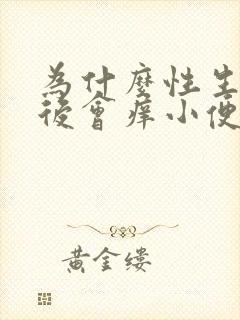 為什麼性生
後會痒小便
黃金缕